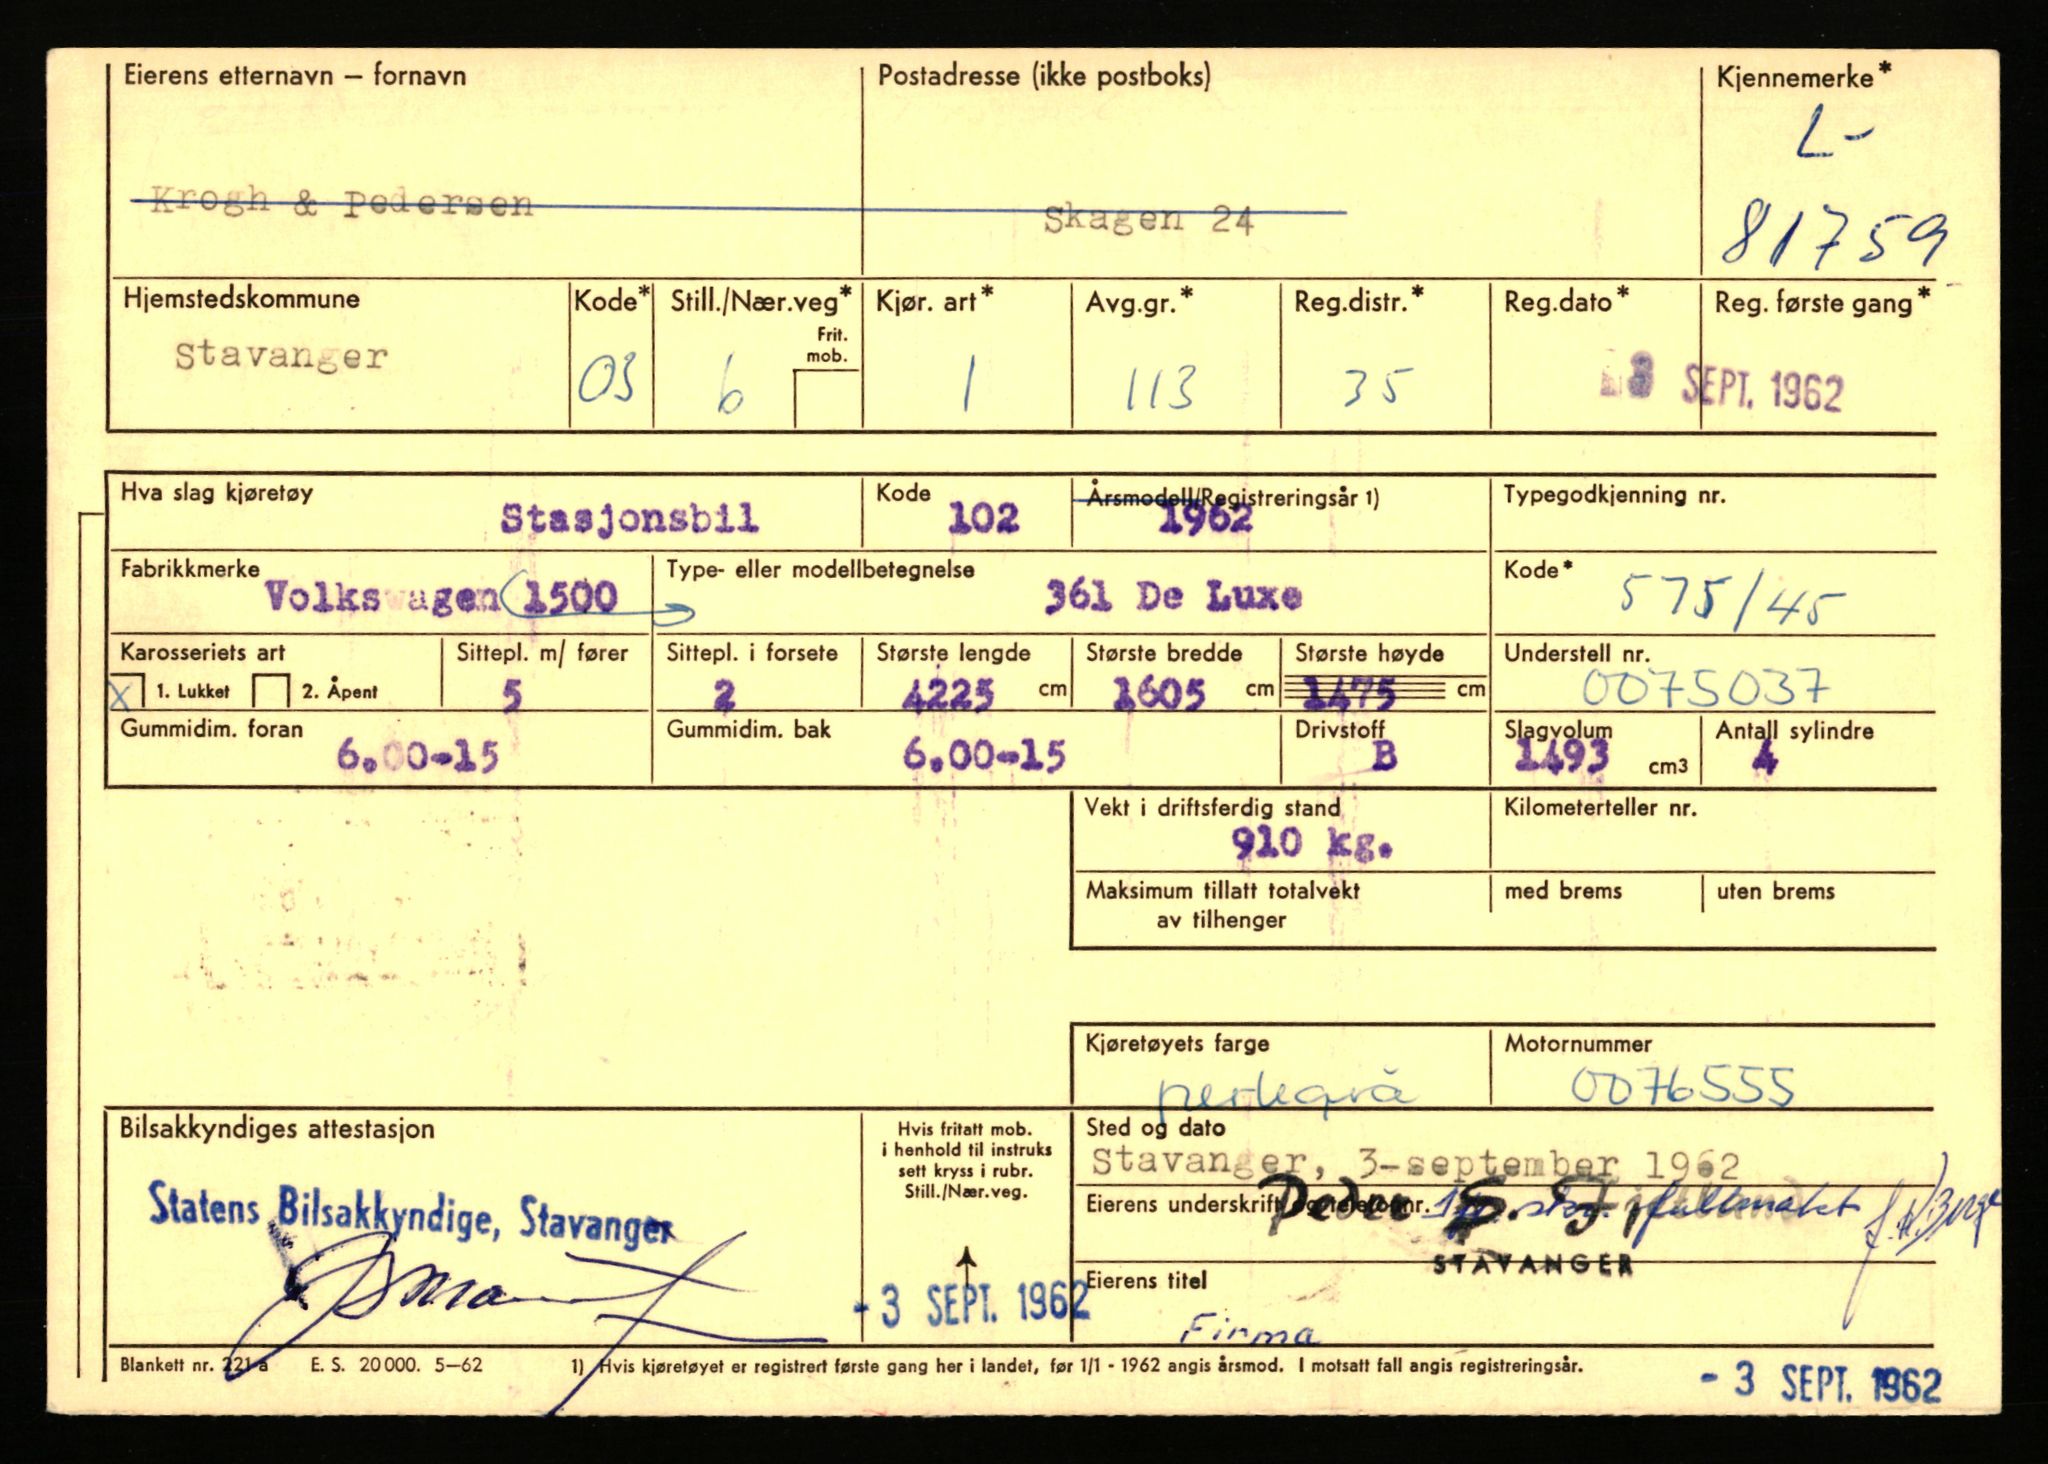 Eierens etternavn – fornavn
Postadresse (ikke postboks)
Kjennemerke*
L-
Krogh & Pedersen
Skagen 24
81759
Hjemstedskommune
Kode*
Still./Nær.veg*
Kjør. art*
Avg.gr.*
Reg.distr.*
Reg.dato*
Reg. første gang*
Frit.
mob.
Stavanger
03
6
1
113
35
3 SEPT. 1962
Hva slag kjøretøy
Stasjonsbil
Kode
102
Årsmodell/Registreringsår 1)
1962
Typegodkjenning nr.
Fabrikkmerke
Volkswagen 1500
Type- eller modellbetegnelse
361 De Luxe
Kode*
575/45
Karosseriets art
X 1. Lukket
2. Åpent
Sittepl. m/ fører
5
Sittepl. i forsete
2
Største lengde
4225 cm
Største bredde
1605 cm
Største høyde
1475 cm
Understell nr.
0075037
Gummidim. foran
6.00-15
Gummidim. bak
6.00-15
Drivstoff
B
Slagvolum
1493 cm3
Antall sylindre
4
Vekt i driftsferdig stand
910 kg.
Kilometerteller nr.
Maksimum tillatt totalvekt
av tilhenger
med brems
uten brems
Kjøretøyets farge
perlegrå
Motornummer
0076555
Bilsakkyndiges attestasjon
Statens Bilsakkyndige, Stavanger
Hvis fritatt mob.
i henhold til instruks
sett kryss i rubr.
Still./Nær.veg.
- 3 SEPT. 1962
Sted og dato
Stavanger, 3-september 1962
Eierens underskrift og telefonnr.
Peder
fullmakt
STAVANGER
Eierens titel
Firma
Blankett nr. 221 a E. S. 20 000. 5–62
1) Hvis kjøretøyet er registrert første gang her i landet, før 1/1 - 1962 angis årsmod. I motsatt fall angis registreringsår.
- 3 SEPT. 1962